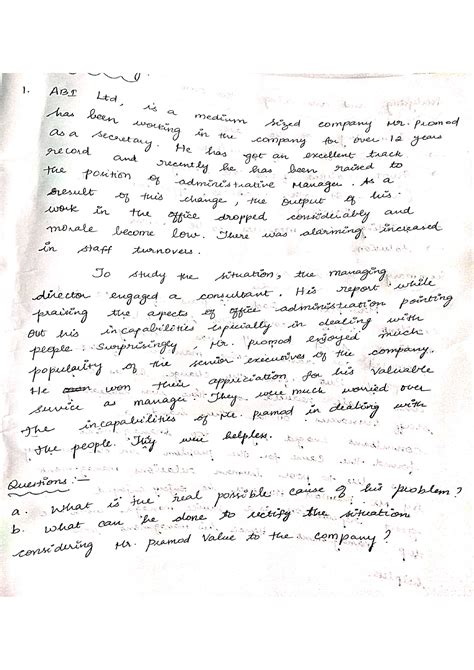 1. ABI Ltd, is a medium sized company Mr. Pramod
has been working in the company for over 12 years
as a secretary. He has got an excellent track
record and recently he has been raised to
the position of administrative Manager. As a
result of this change, the output of his
work in the office dropped considerably and
morale become low. There was alarming increased
in staff turnovers.
To study the situation, the managing
director engaged a consultant. His report while
praising the aspects of office administration pointing
out his incapabilities especially in dealing with
people. Surprisingly Mr. Pramod enjoyed much
popularity of the senior executives of the company.
He won their appriciation for his Valuable
service as manager. They were much worried over
the incapabilities of Mr. Pramod in dealing with
the people. They were helpless.
Questions :-
a. What is the real possible cause of his problem?
b. What can be done to rectify the situation
considering Mr. Pramod Value to the company?